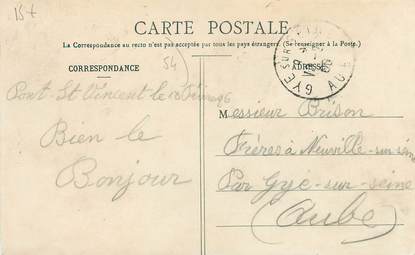 15 t
CARTE POSTALE
La Correspondance au recto n'est pas acceptée par tous les pays étrangers. (Se renseigner à la Poste.)
CORRESPONDANCE
ADRESSE
54
GYE SUR
AUBE
Pont-St Vincent le
Bien le
Bonjour
Messieur Brison
Frères à Neuville-sur-sein
Par Gyé-sur-seine
(Aube)